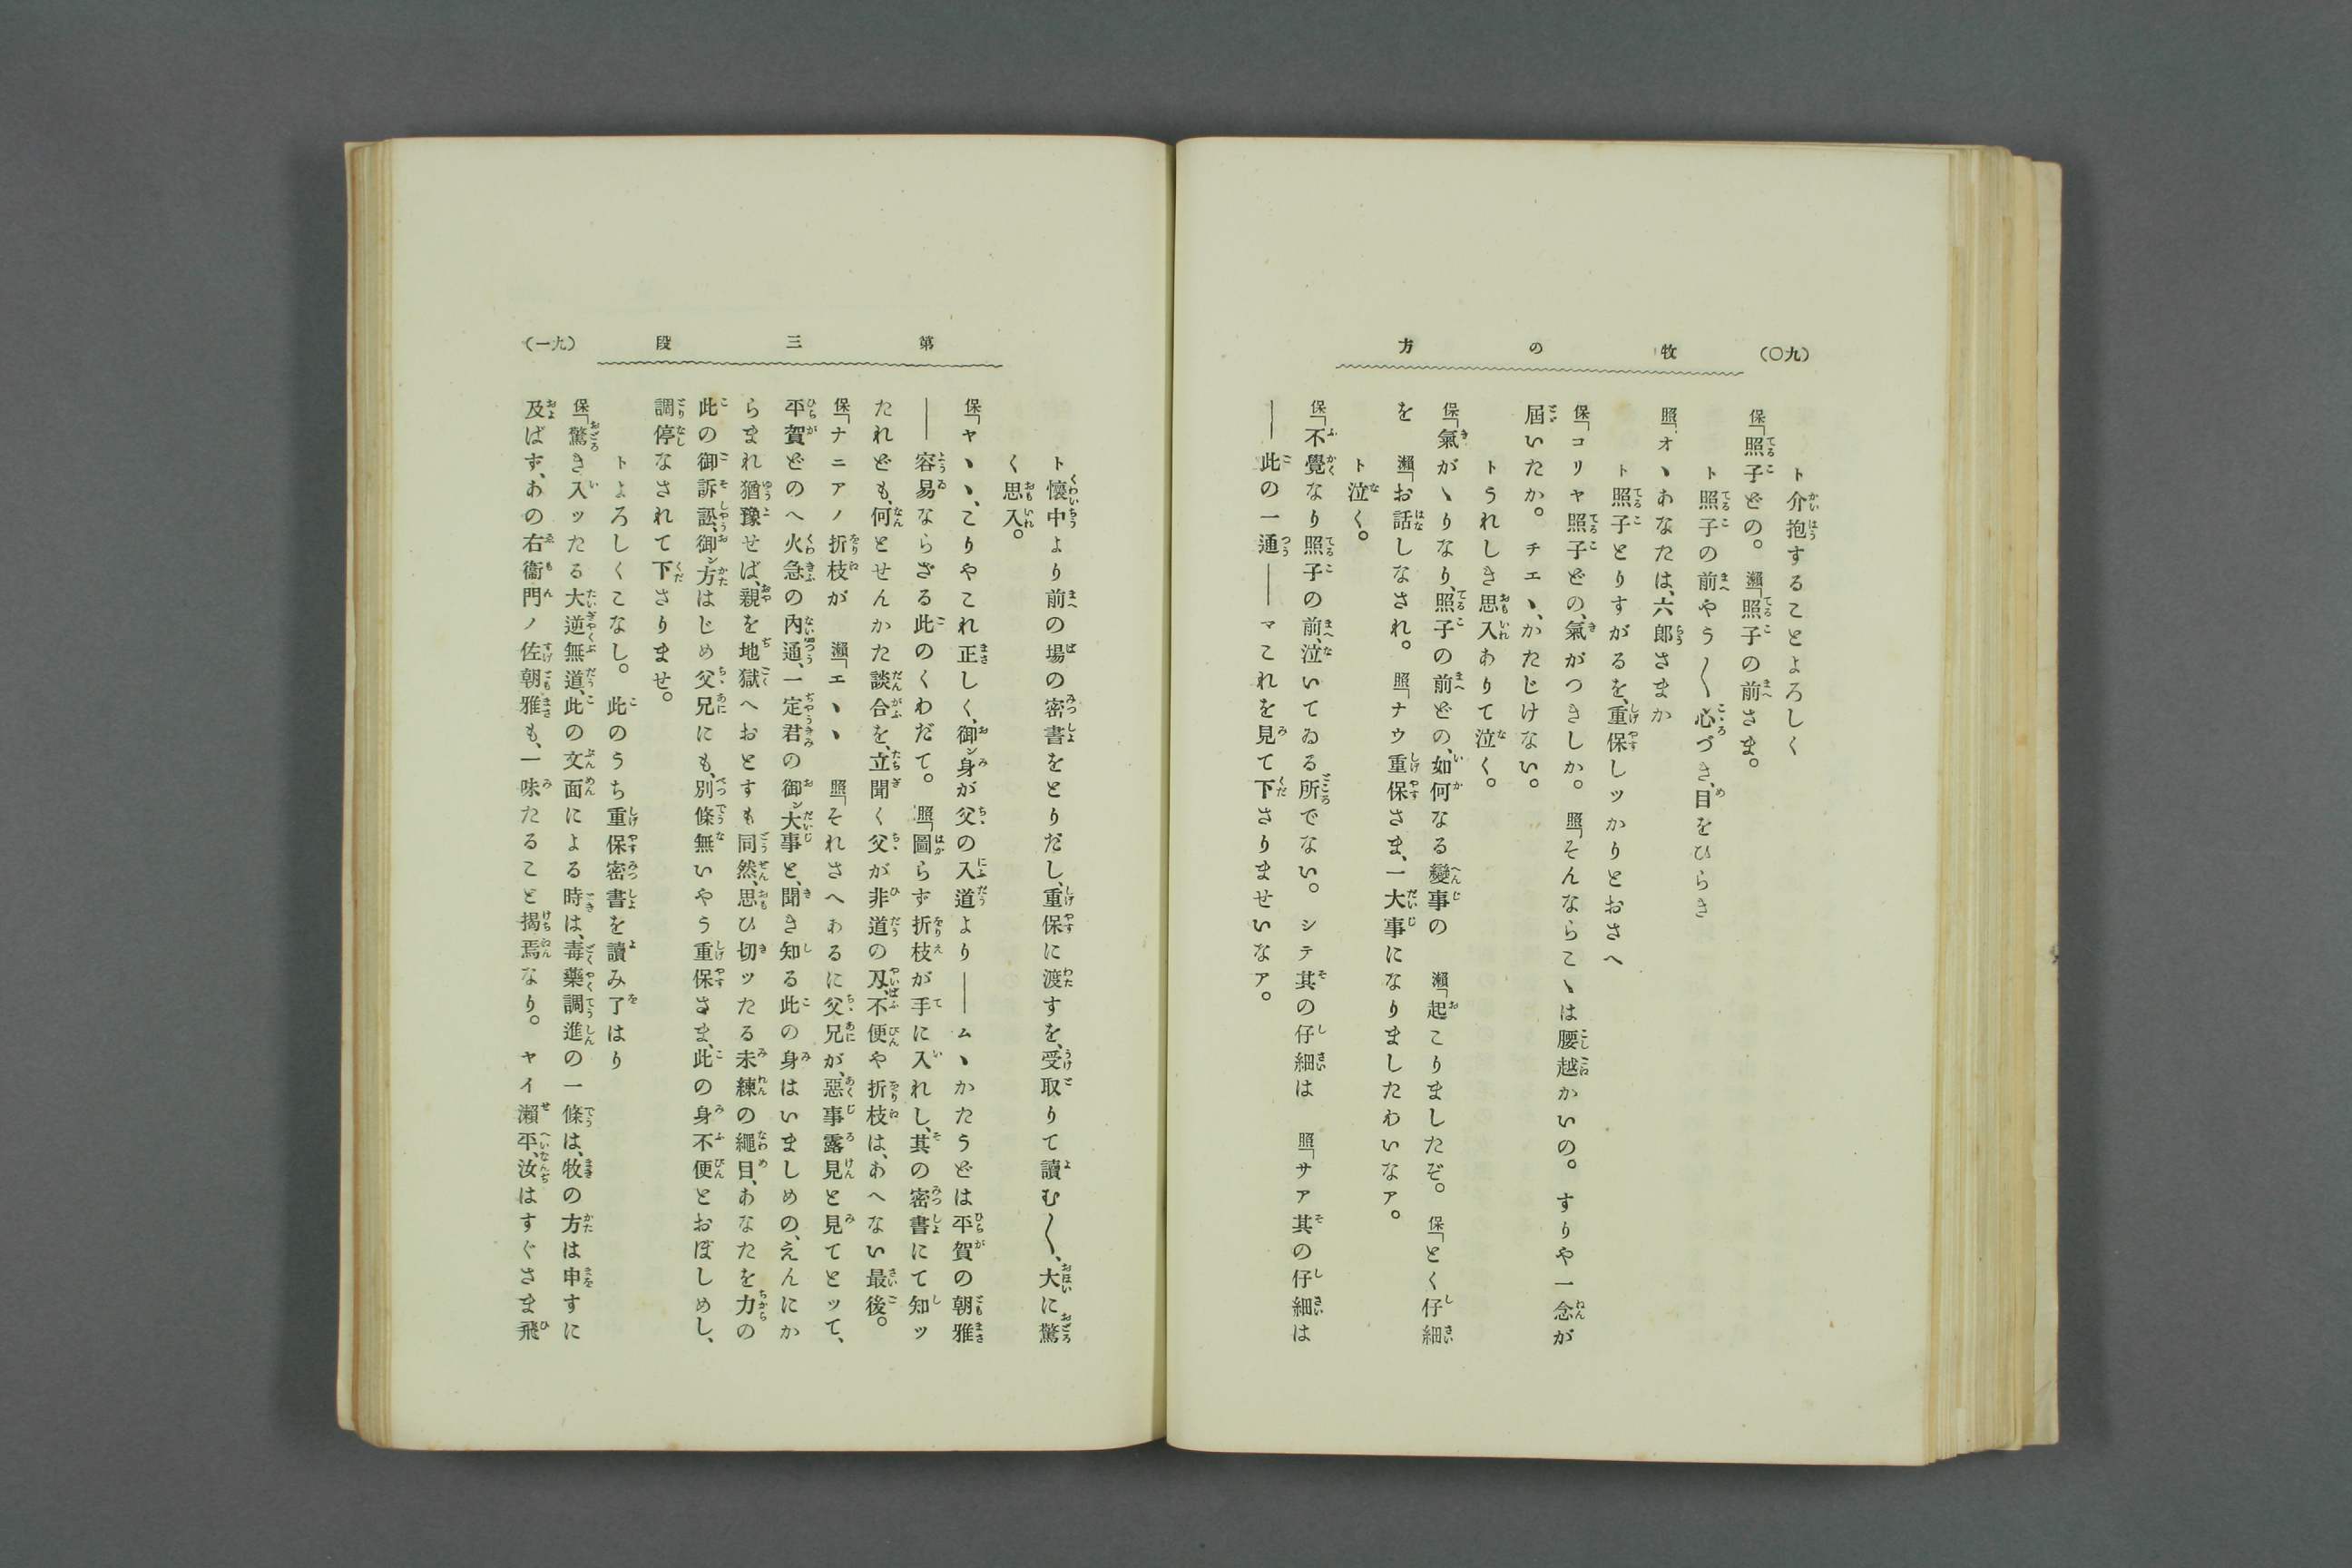 (九〇)
牧の方
ト介抱することよろしく
保「照子どの。　瀨「照子の前さま。
ト照子の前やう〳〵心づき、目をひらき
照「オヽあなたは、六郎さまか
ト照子とりすがるを、重保しッかりとおさへ
保「コリヤ照子どの、氣がつきしか。　照「そんならこヽは腰越かいの。すりや一念が
屆いたか。チエヽ、かたじけない。
トうれしき思入ありて泣く。
保「氣がヽりなり、照子の前どの、如何なる變事の　瀨「起こりましたぞ。　保「とく仔細
を　瀨「お話しなされ。　照「ナウ重保さま、一大事になりましたわいなア。
ト泣く。
保「不覺なり照子の前、泣いてゐる所でない。シテ其の仔細は　照「サア其の仔細は
――此の一通――マこれを見て下さりませいなア。
第三段
(九一)
ト懷中より前の場の密書をとりだし、重保に渡すを、受取りて讀む〳〵、大に驚
く思入。
保「ヤヽヽ、こりやこれ正しく、御ン身が父の入道より――ムヽかたうどは平賀の朝雅
――容易ならざる此のくわだて。　照「圖らず折枝が手に入れし、其の密書にて知ッ
たれども、何とせんかた談合を、立聞く父が非道の刄、不便や折枝は、あへない最後。
保「ナニアノ折枝が　瀨「エヽヽ　照「それさへあるに父兄が、惡事露見と見てとッて、
平賀どのへ火急の內通、一定君の御ン大事と、聞き知る此の身はいましめの、えんにか
らまれ猶豫せば、親を地獄へおとすも同然、思ひ切ッたる未練の繩目、あなたを力の
此の御訴訟、御ン方はじめ父兄にも、別條無いやう重保さま、此の身不便とおぼしめし、
調停なされて下さりませ。
トよろしくこなし。　此のうち重保密書を讀み了はり
保「驚き入ッたる大逆無道、此の文面による時は、毒藥調進の一條は、牧の方は申すに
及ばず、あの右衞門ノ佐朝雅も、一味たること揭焉なり。ヤイ瀨平、汝はすぐさま飛